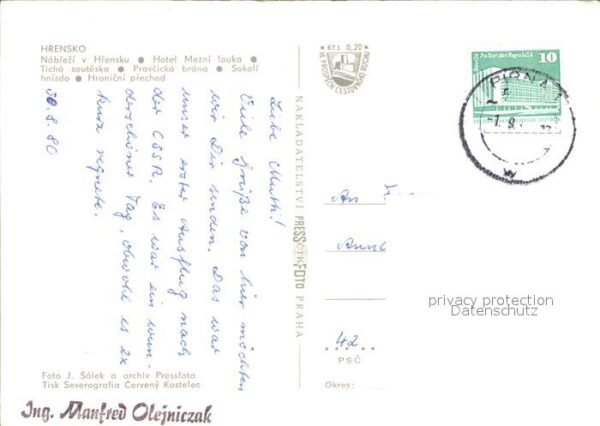 HŘENSKO
Nábřeží v Hřensku ● Hotel Mezní louka ●
Tichá soutěska ● Pravčická brána ● Sokolí
hnízdo ● Hraniční přechod
30.8.80
Liebe Mutti!
Viele Grüße von hier möchten
wir Dir senden. Das war
unser erster Ausflug nach
der CSSR. Es war ein wun-
derschöner Tag, obwohl es 2x
kurz regnete.
Foto J. Šálek a archiv Pressfota
Tisk Severografia Červený Kostelec
Ing. Manfred Olejniczak
NAKLADATELSTVÍ PRESSFOTO PRAHA
ČTK
Kčs 0,20
Berlin Palast der Republik
10
PIRNA 1
-1.9.
An
42
PSČ
Okres:
privacy protection
Datenschutz